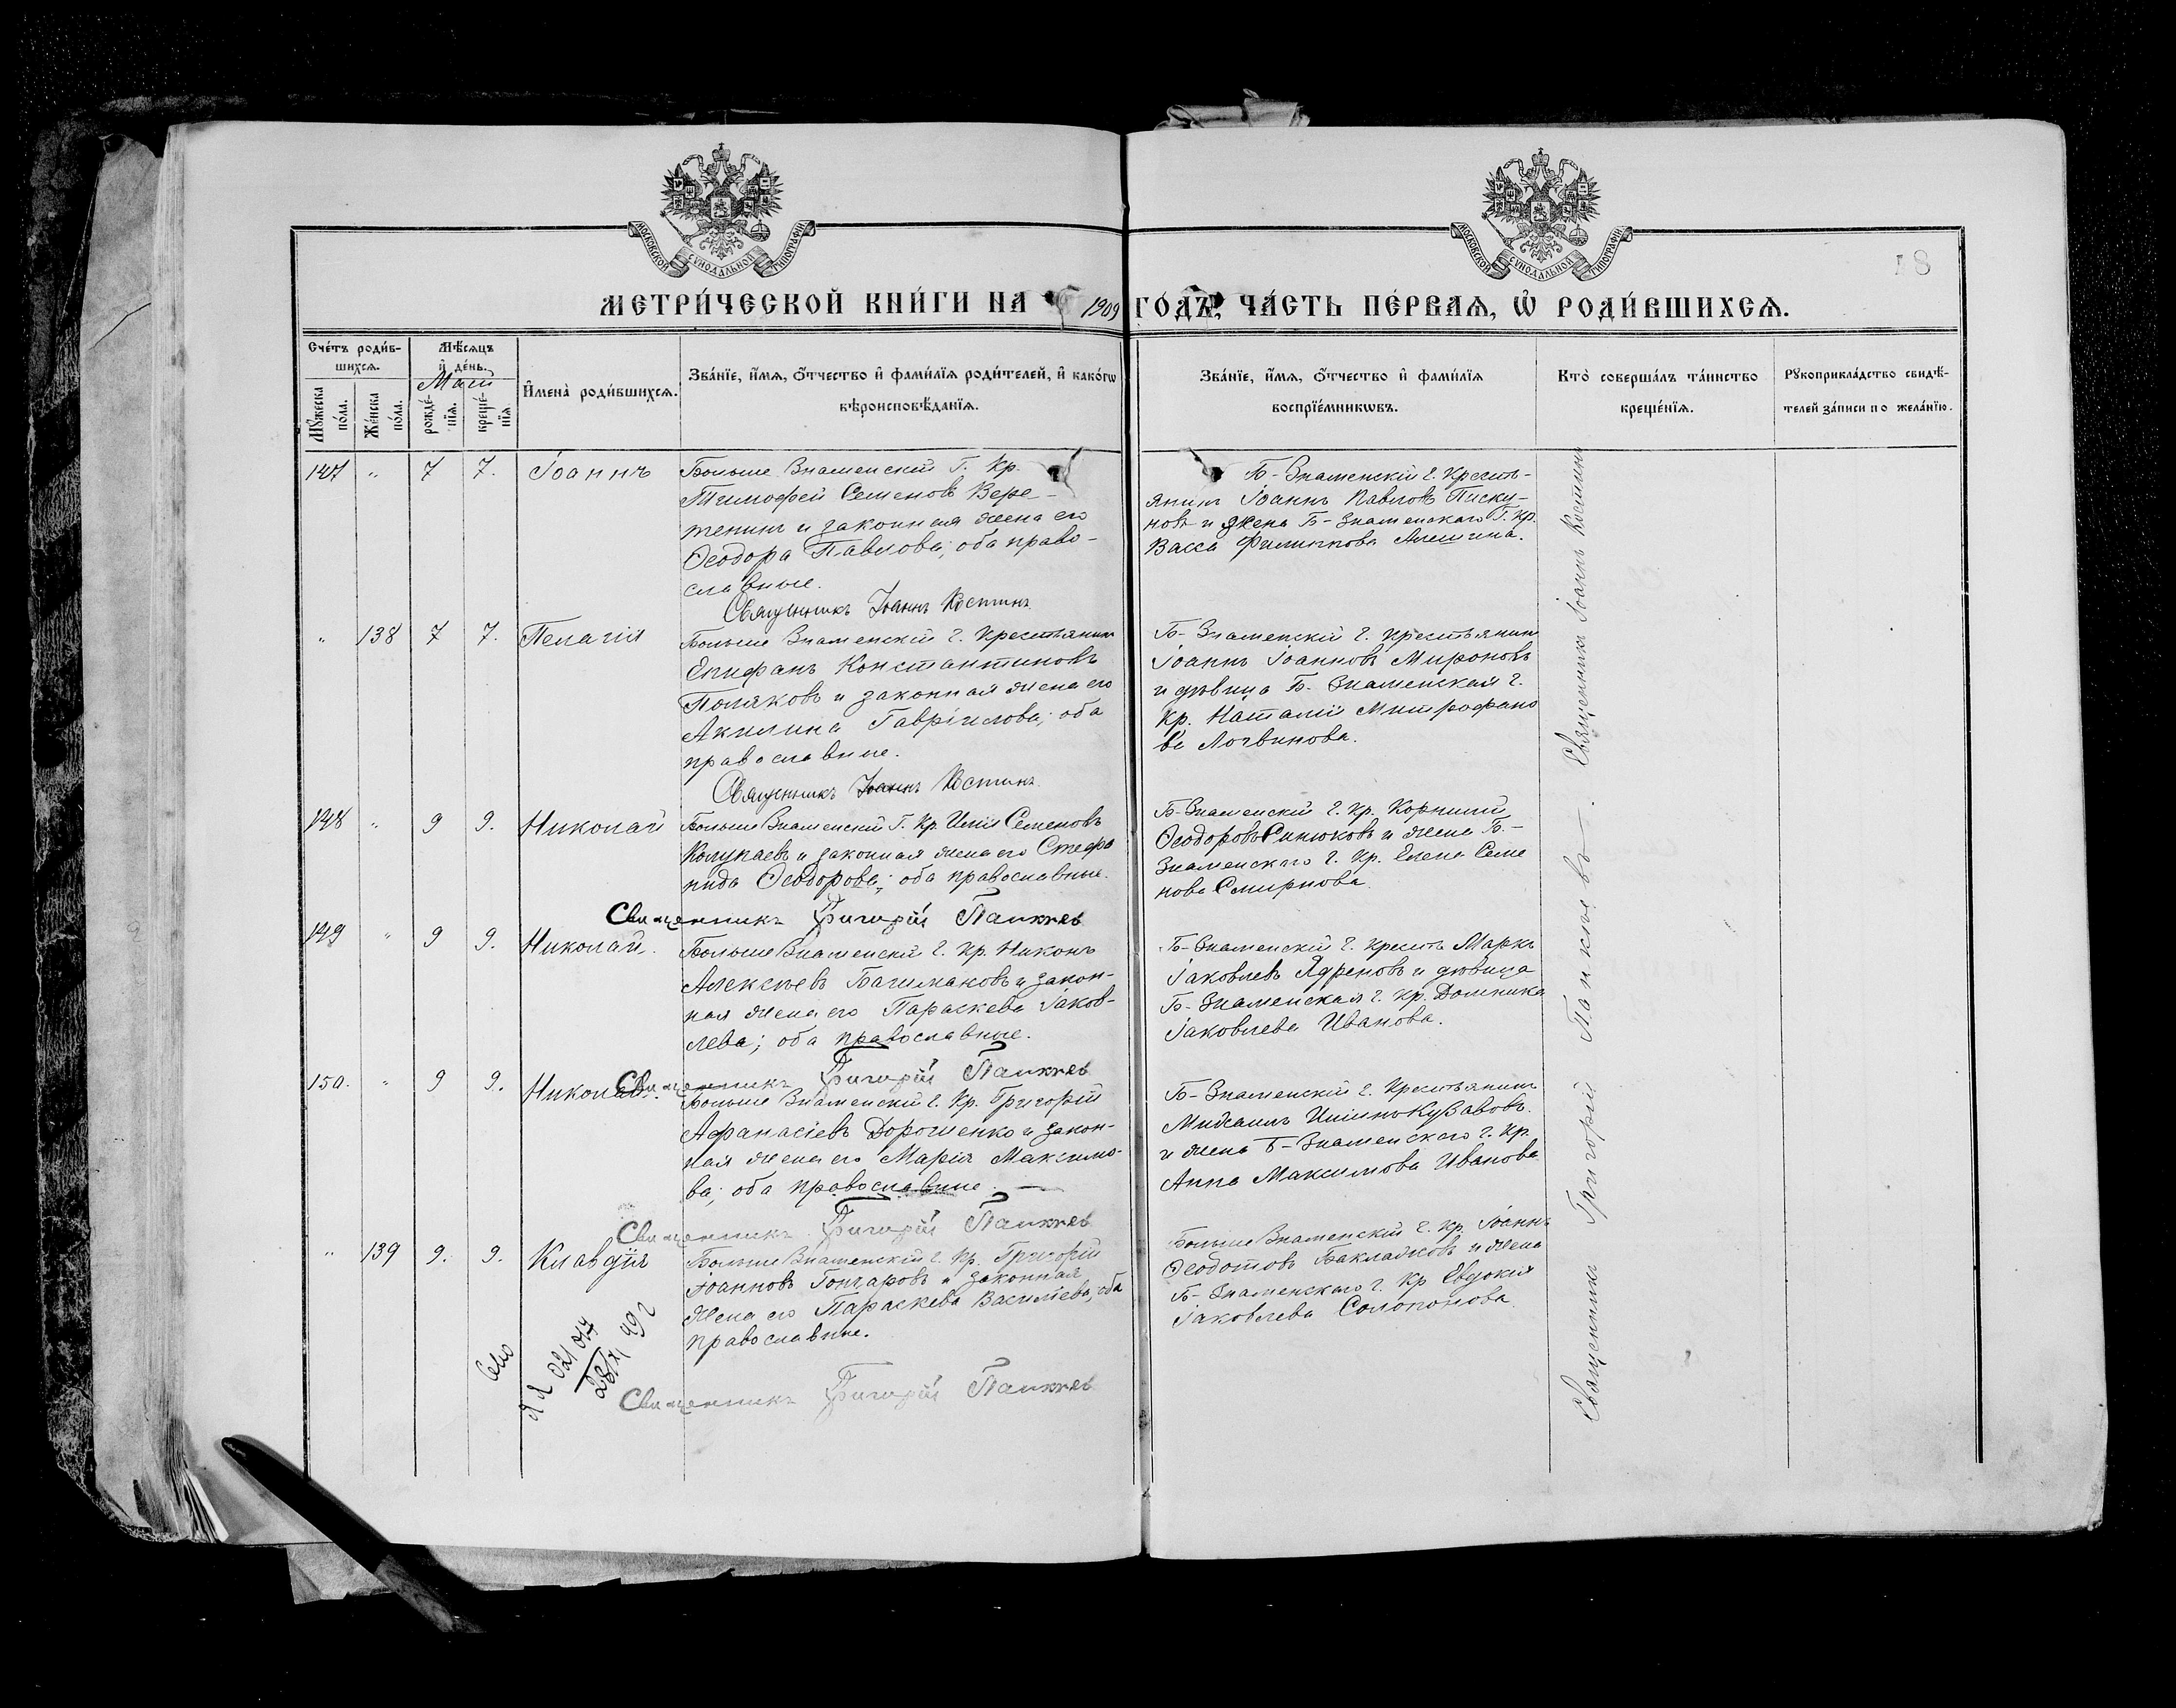 МОСКОВСКОЙ СѴНОДАЛЬНОЙ ТИПОГРАФІИ
МОСКОВСКОЙ СѴНОДАЛЬНОЙ ТИПОГРАФІИ
18
МЕТРИ́ЧЕСКОЙ КНИ́ГИ НА 1909 ГО́ДЪ, ЧА́СТЬ ПЕ́РВАЯ, Ѡ҆ РОДИ́ВШИХСЯ.
Сче́тъ роди́в-
шихся.
Мꙋ́жеска
по́ла.
Же́нска
по́ла.
Мѣ́сяцъ
и҆ де́нь.
Май
рожде́-
нїя.
креще́-
нїя
И҆мена̀ роди́вшихся.
Зва́нїе, и҆́мя, ѻ҆́тчество и҆ фами́лїя роди́телей, и҆ како́гѡ
вѣроисповѣ́данїя.
Зва́нїе, и҆́мя, ѻ҆́тчество и҆ фами́лїя
воспрїе́мникѡвъ.
Кто̀ соверша́лъ та́инство
креще́нїя.
Рꙋкоприкла́дство свидѣ́-
телей за́писи по жела́нїю.
147 " 7 7. Іоаннъ
Больше Знаменскій Г. Кр.
Тимофей Семеновъ Вере-
тенинъ и законная жена его
Ѳеодора Павлова; оба право-
славные.
Священникъ Іоаннъ Костинъ
Б-Знаменскій г. Кресть-
янинъ Іоаннъ Павловъ Писку-
новъ и жена Б-Знаменскаго Г. Кр.
Васса Филиппова Алешина.
" 138 7 7. Пелагія
Больше Знаменскій г. Крестьянинъ
Епифанъ Константиновъ
Поляковъ и законная жена его
Акилина Гавріилова; оба
православные.
Священникъ Іоаннъ Костинъ
Б-Знаменскій г. крестьянинъ
Іоаннъ Іоанновъ Мироновъ
и дѣвица Б. Знаменская г.
Кр. Наталія Митрофано
ва Логвинова.
148 " 9 9. Николай
Больше Знаменскій Г. Кр. Илія Семеновъ
Колупаевъ и законная жена его Стефа
нида Ѳеодорова; оба православные.
Священникъ Григорій Панкѣев
Б-Знаменскій г. Кр. Корнилій
Ѳеодоровъ Синюковъ и жена Б-
Знаменскаго г. Кр. Елена Семе
нова Смирнова.
149 " 9 9. Николай.
Больше Знаменскій г. Кр. Никонъ
Алексѣевъ Багимановъ и закон-
ная жена его Параскева Іаков-
лева; оба православные.
Священникъ Григорій Панкѣев
Б-Знаменскій г. крестъ Маркъ
Іаковлевъ Ядреновъ и дѣвица
Б-Знаменская г. Кр. Домника
Іаковлева Иванова.
150. " 9 9. Николай.
Больше Знаменскій г. Кр. Григорій
Афанасіевъ Дорошенко и закон-
ная жена его Марія Максимо-
ва; оба православные.
Священникъ Григорій Панкѣев
Б-Знаменскій г. Крестьянинъ
Михаилъ Иліинъ Кувавовъ.
и жена Б-Знаменскаго г. Кр.
Анна Максимова Иванова
" 139 9. 9. Клавдія
Больше Знаменскій г. Кр. Григорій
Іоанновъ Гончаровъ и законная
жена его Параскева Василіева, оба
православные.
Священникъ Григорій Панкѣев
Больше Знаменскій г. Кр. Іоаннъ
Ѳеодотовъ Баклажковъ и жена
Б-Знаменскаго г. Кр Евдокія
Іаковлева Солопонова.
Священникъ Григорій Панкѣевъ. Священникъ Іоаннъ Костинъ